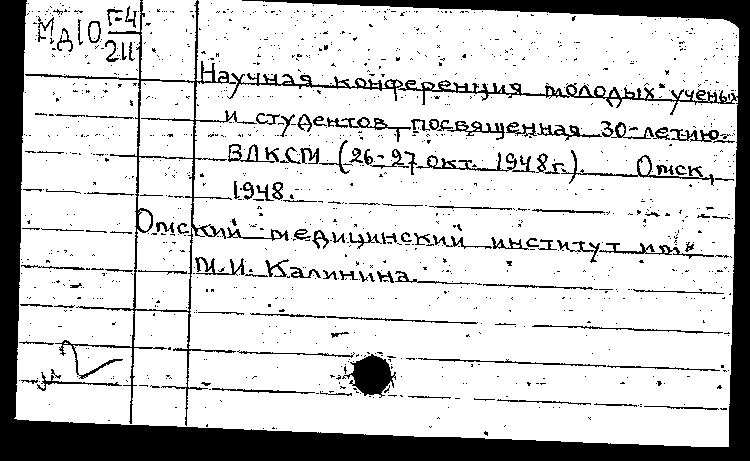 Мд10 Г-4
211
Научная конференция молодых ученых
и студентов, посвященная 30-летию
ВЛКСМ (26-27 окт. 1948г.). Омск,
1948.
Омский медицинский институт им.
М.И. Калинина.